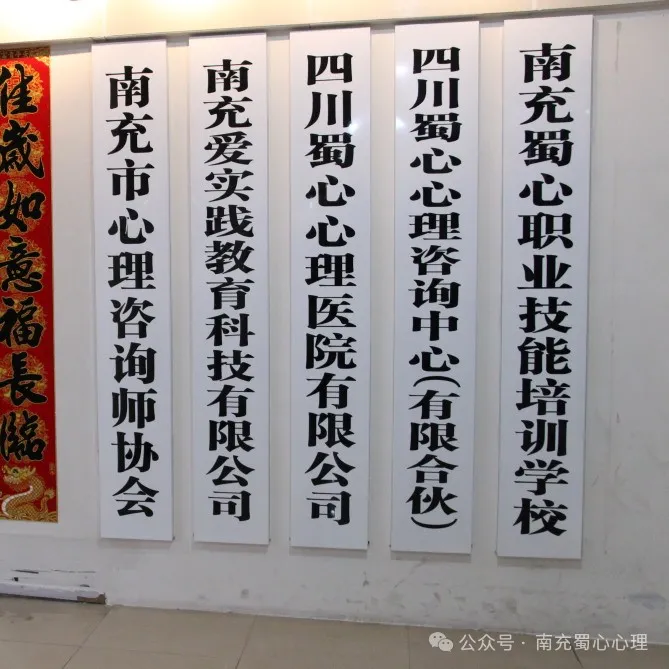 佳歲如意福長臨
南充市心理咨询师协会
南充爱实践教育科技有限公司
四川蜀心心理医院有限公司
四川蜀心心理咨询中心(有限合伙)
南充蜀心职业技能培训学校
公众号·南充蜀心心理